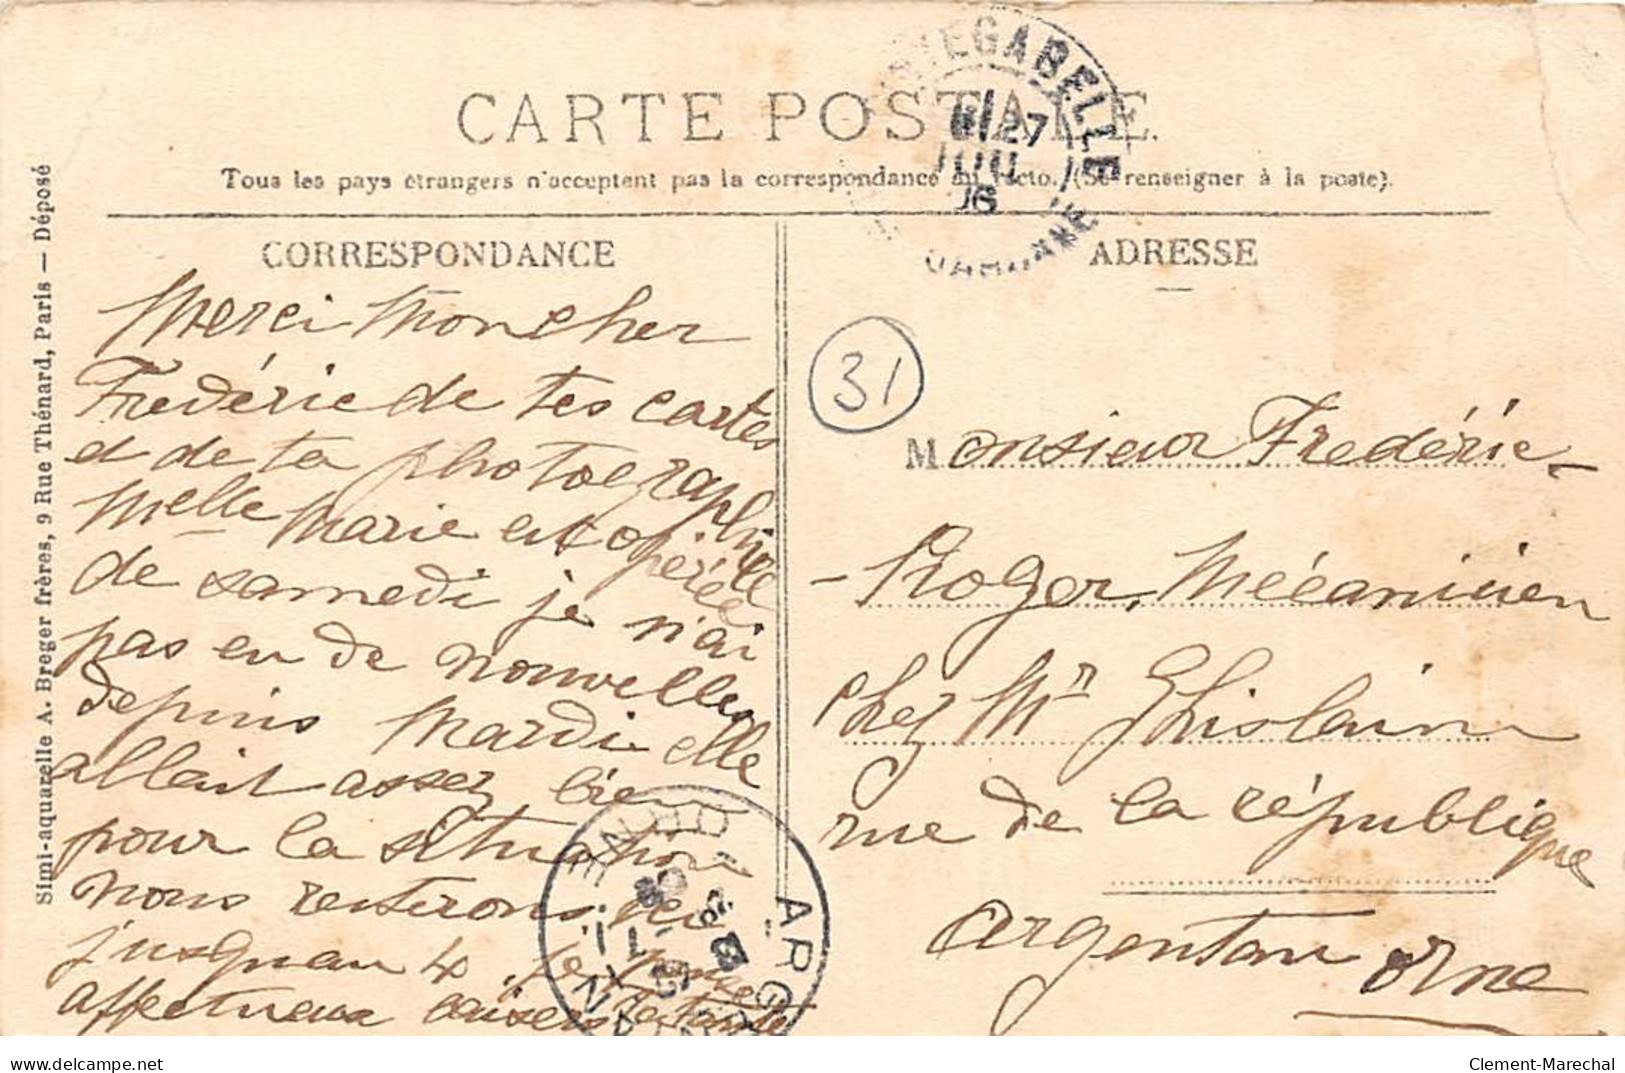 CARTE POSTALE
Tous les pays étrangers n'acceptent pas la correspondance au recto. (Se renseigner à la poste).
Simi-aquarelle A. Breger frères, 9 Rue Thénard, Paris — Déposé
CORRESPONDANCE
Merci Mon cher
Frédéric de tes cartes
et de ta photographie
Melle Marie est opérée
de samedi je n'ai
pas eu de nouvelles
depuis Mardi elle
allait assez bien
pour la situation
nous resterons ici
jusquau 4 je
affectueux baisers ta tante
ADRESSE
31
Monsieur Frédéric
Roger, Mécanicien
chez Mr Ghislain
rue de la république
argentan orne
GABELLE
27
06
ARGENTAN
ORNE
delcampe.net
Clement-Marechal